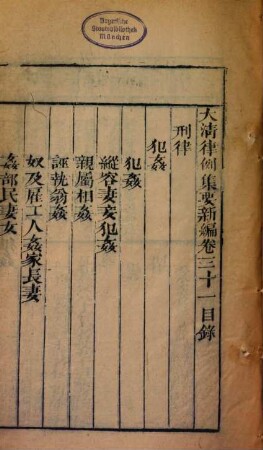 Bayerische
Staatsbibliothek
München
大清律例集要新編卷三十一目錄
刑律
犯姦
犯姦
縱容妻妾犯姦
親屬相姦
誣執翁姦
奴及雇工人姦家長妻
姦部民妻女